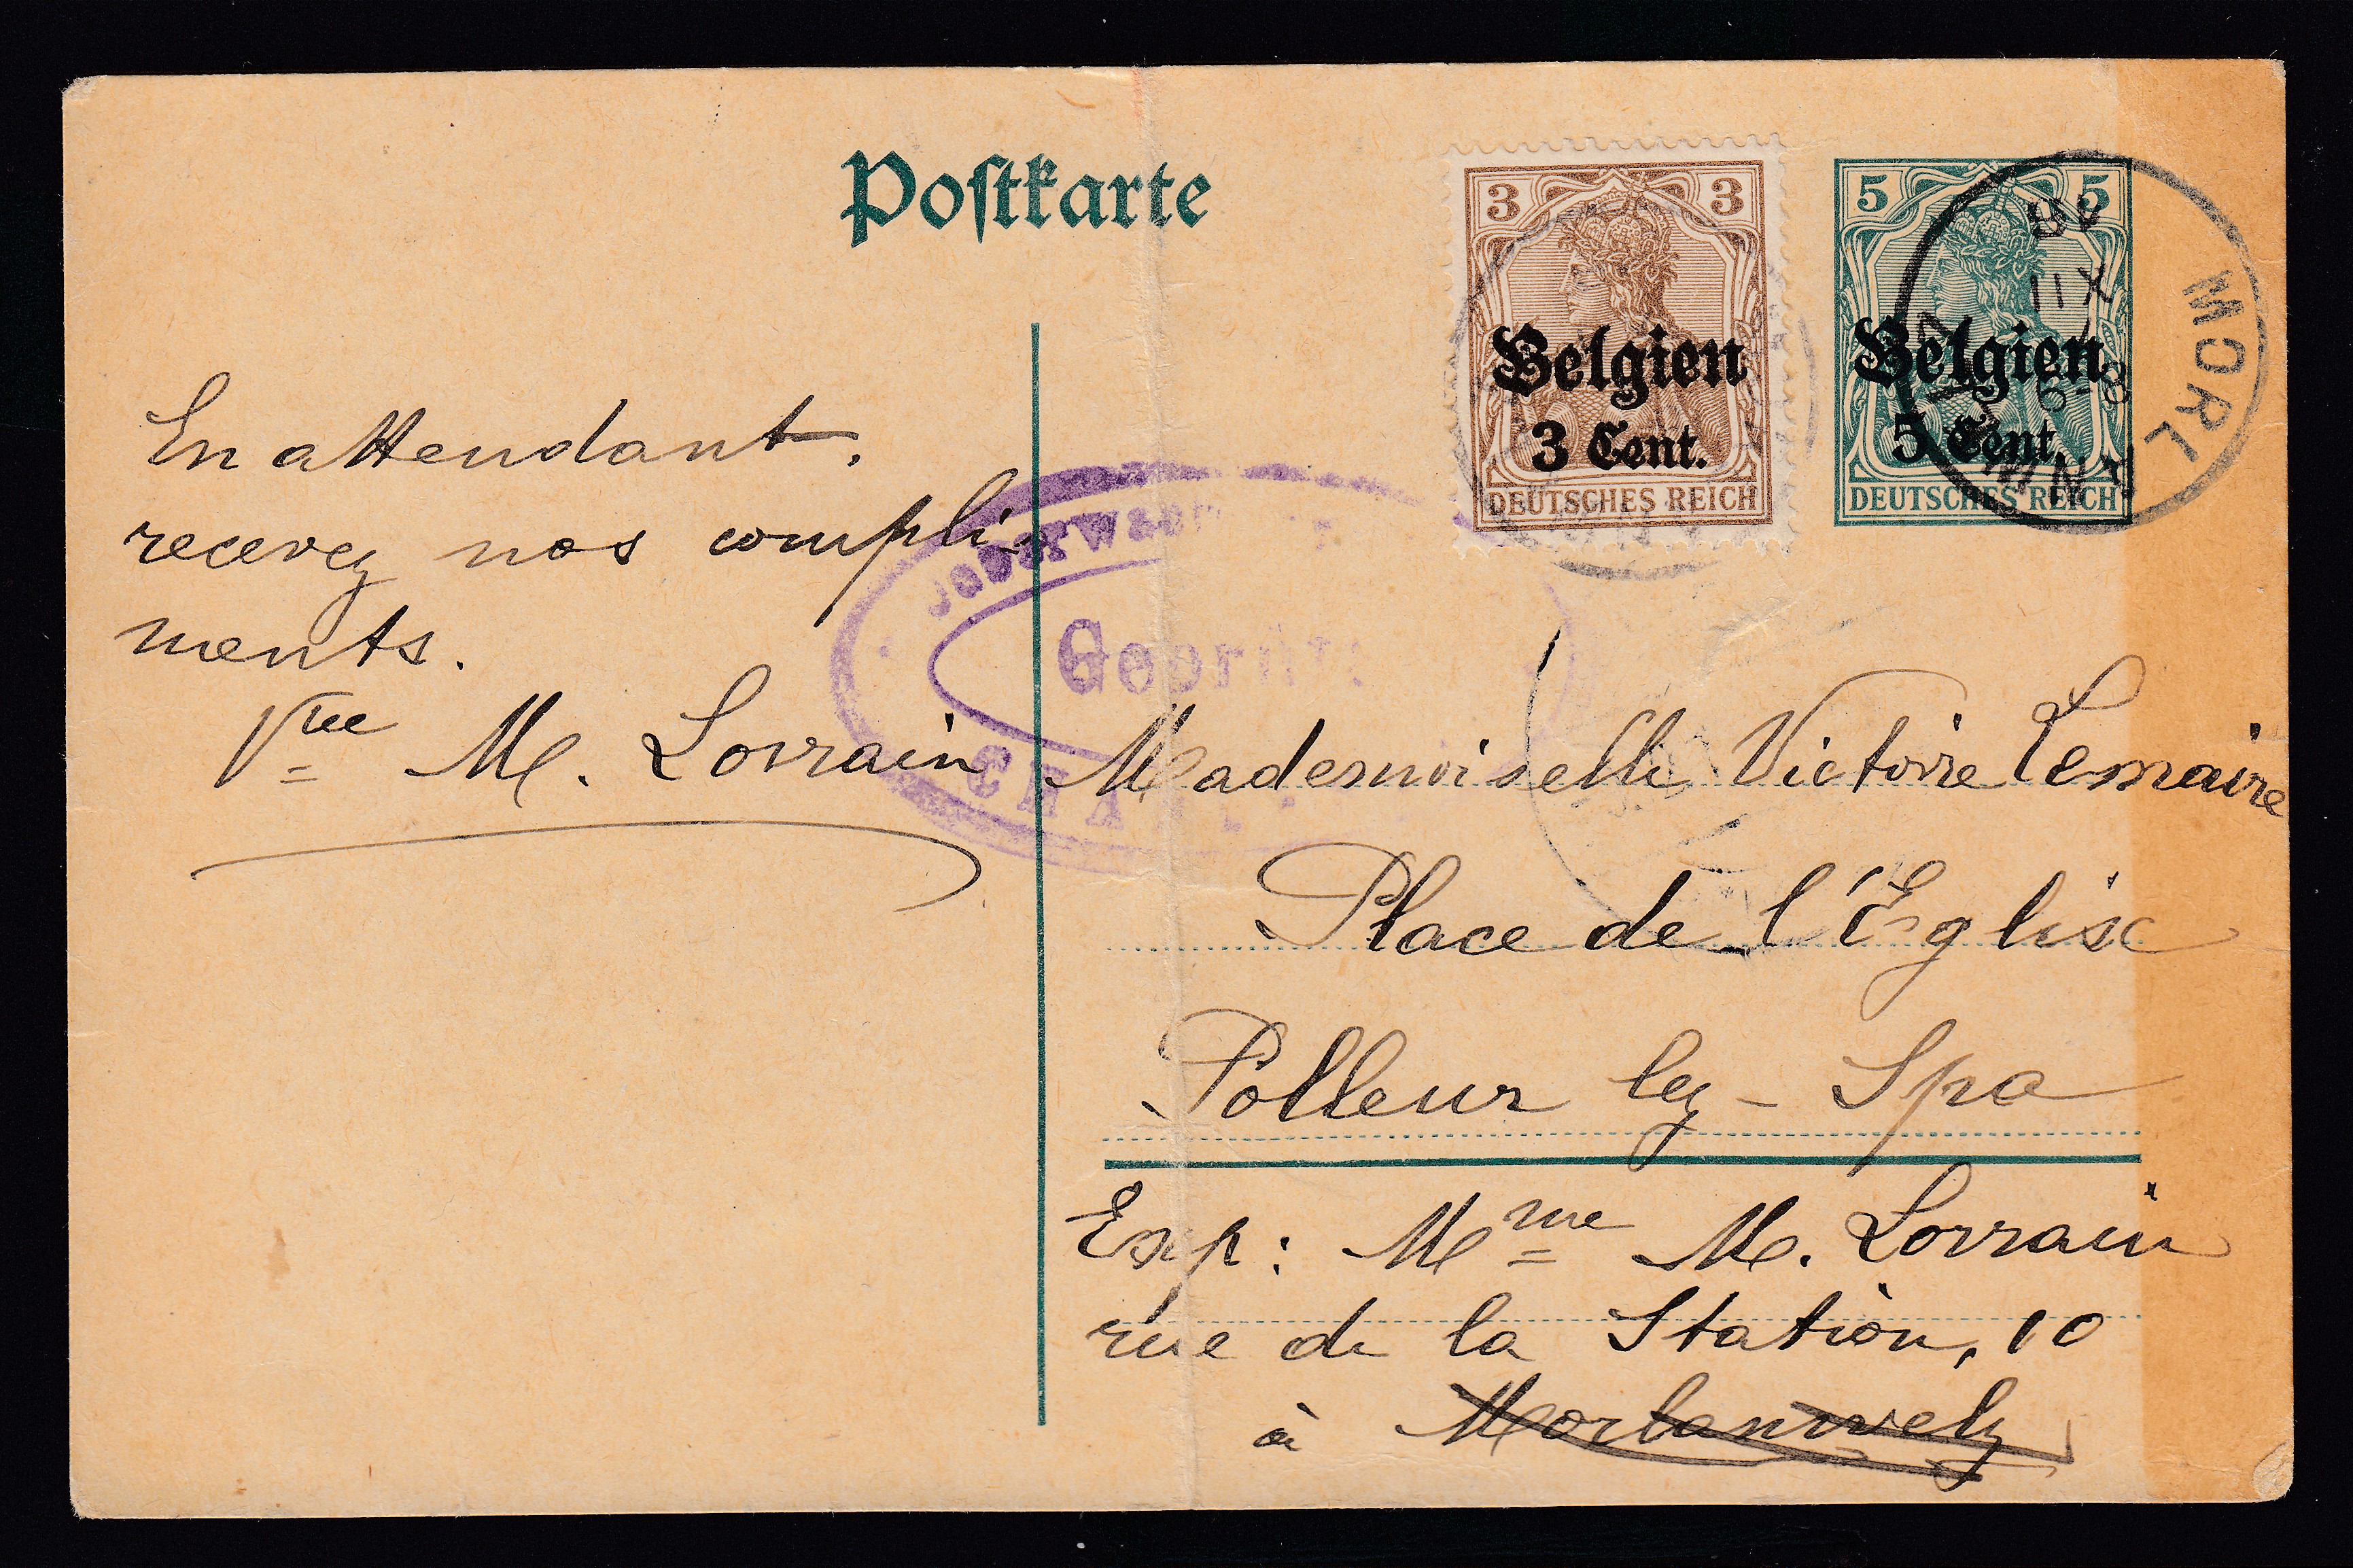 Postkarte
3 3
Belgien
3 Cent.
DEUTSCHES REICH
5 5
Belgien
5 Cent.
DEUTSCHES REICH
MORL
XII
6-8
En attendant,
recevez nos compli-
ments.
Vve M. Lorrain
Mademoiselle Victoire Lemaire
Place de l'Eglise
Polleur lez - Spa
Exp: Mme M. Lorrain
rue de la Station, 10
à Morlanwelz